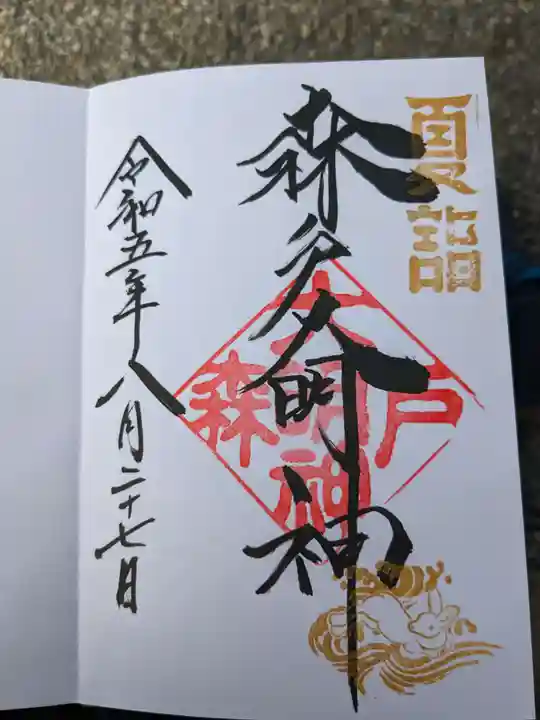 夏詣
森戸大明神
戸
大明神
森
令和五年八月二十七日